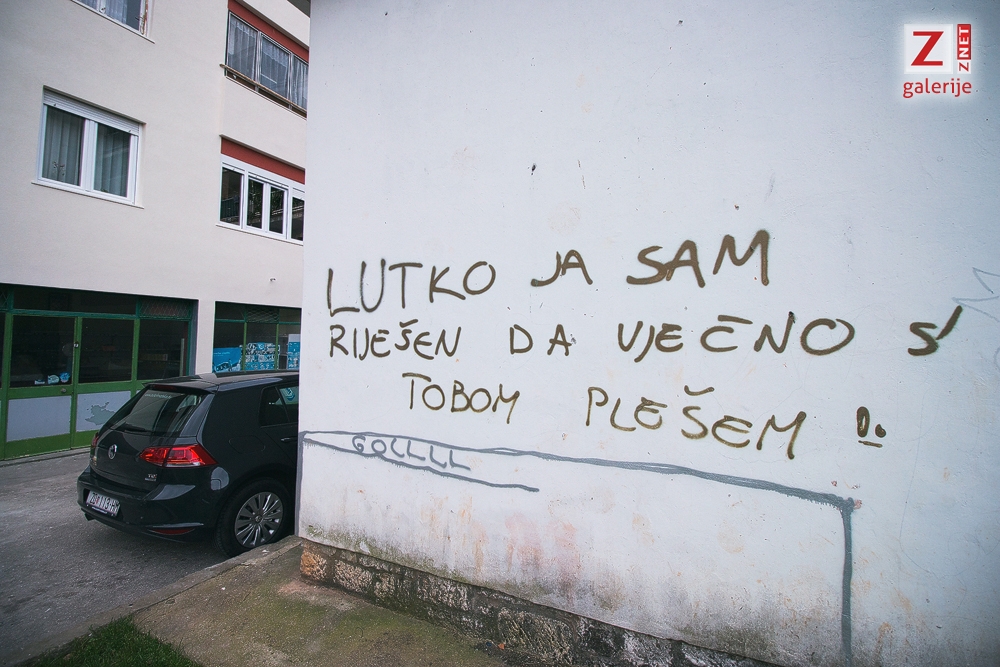 Z ZNET
galerije
LUTKO JA SAM
RIJEŠEN DA VJEČNO S'
TOBOM PLEŠEM !
GOLLLL